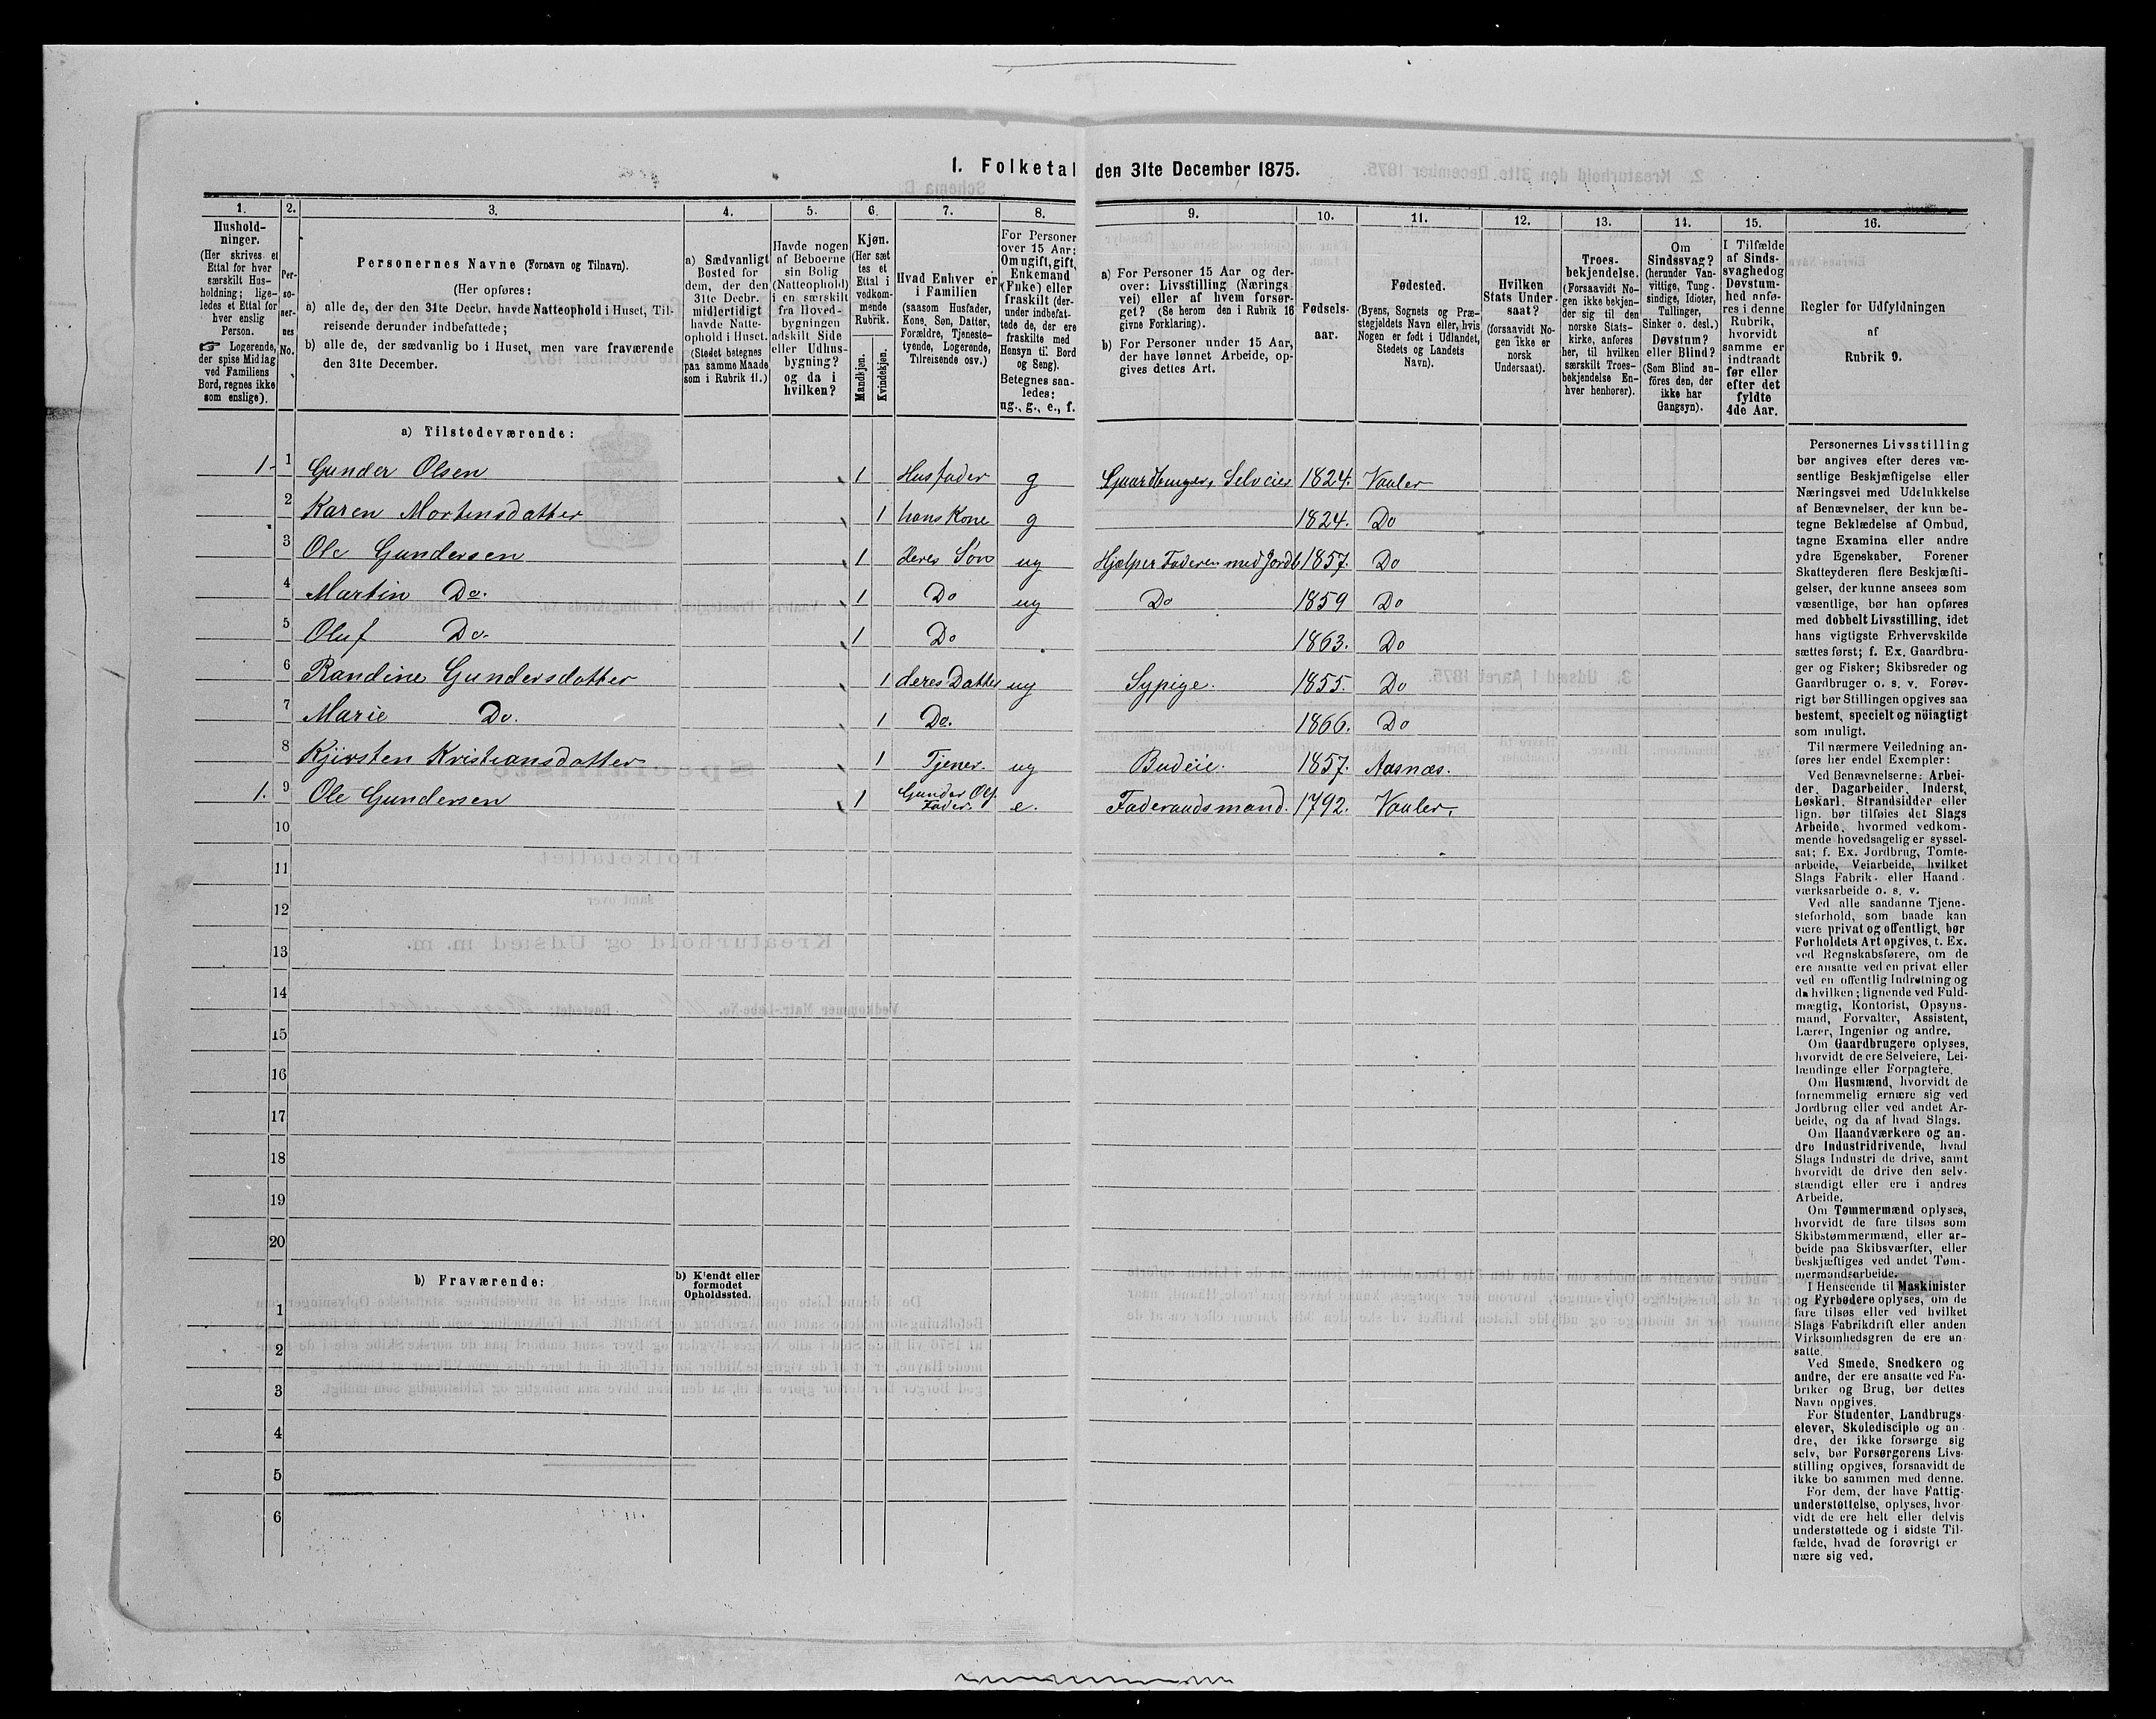 1. Folketal den 31te December 1875.
1. 2. 3. 4. 5. 6. 7. 8. 9. 10. 11. 12. 13. 14. 15. 16.
Hushold-
ninger.
(Her skrives et
Ettal for hver
særskilt Hus-
holdning; lige-
ledes et Ettal for
hver enslig
Person.
☞ Logerende,
der spise Middag
ved Familiens
Bord, regnes ikke
som enslige).
Per-
so-
ner-
nes
No.
Personernes Navne (Fornavn og Tilnavn).
(Her opføres:
a) alle de, der den 31te Decbr. havde Natteophold i Huset, Til-
reisende derunder indbefattede;
b) alle de, der sædvanlig bo i Huset, men vare fraværende
den 31te December.
a) Sædvanligt
Bosted for
dem, der den
31te Decbr.
midlertidigt
havde Natte-
ophold i Huset.
(Stedet betegnes
paa samme Maade
som i Rubrik 11.)
Havde nogen
af Beboerne
sin Bolig
(Natteophold)
i en særskilt
fra Hoved-
bygningen
adskilt Side
eller Udhus-
bygning?
og da i
hvilken?
Kjøn.
(Her sæt
tes et
Ettal i
vedkom-
mende
Rubrik.
Mandkjøn.
Kvindekjøn.
Hvad Enhver er
i Familien
(saasom Husfader,
Kone, Søn, Datter,
Forældre, Tjeneste-
tyende, Logerende,
Tilreisende osv.)
For Personer
over 15 Aar:
Om ugift, gift,
Enkemand
(Enke) eller
fraskilt (der-
under indbefat-
tede de, der ere
fraskilte med
Hensyn til Bord
og Seng).
Betegnes saa-
ledes:
ug., g., e., f.
a) For Personer 15 Aar og der-
over: Livsstilling (Nærings
vei) eller af hvem forsør-
get? (Se herom den i Rubrik 16
givne Forklaring).
b) For Personer under 15 Aar,
der have lønnet Arbeide, op-
gives dettes Art.
Fødsels-
aar.
Fødested.
(Byens, Sognets og Præ-
stegjeldets Navn eller, hvis
Nogen er født i Udlandet,
Stedets og Landets
Navn).
Hvilken
Stats Under-
saat?
(forsaavidt No-
gen ikke er
norsk
Undersaat).
Troes-
bekjendelse.
(Forsaavidt No-
gen ikke bekjen-
der sig til den
norske Stats-
kirke, anføres
her, til hvilken
særskilt Troes-
bekjendelse En-
hver henhører).
Om
Sindssvag?
(herunder Van-
vittige, Tung-
sindige, Idioter,
Tullinger,
Sinker o. desl.)
Døvstum?
eller Blind?
(Som Blind an-
føres den, der
ikke har
Gangsyn).
I Tilfælde
af Sinds-
svaghed og
Døvstum-
hed anfø-
res i denne
Rubrik,
hvorvidt
samme er
indtraadt
før eller
efter det
fyldte
4de Aar.
Regler for Udfyldningen
af
Rubrik 9.
a) Tilstedeværende:
1. 1 Gunder Olsen 1 Husfader g Gaardbruger, Selveier 1824. Vaaler
2 Karen Mortensdatter 1 hans Kone g 1824. Do
3 Ole Gundersen 1 deres Søn ug Hjælper Faderen med Jordb 1857. Do
4 Martin Do. 1 Do ug Do 1859 Do
5 Oluf Do. 1 Do 1863. Do
6 Randine Gundersdatter 1 deres Datter ug Sypige. 1855. Do
7 Marie Do. 1 Do. 1866. Do
8 Kjersten Kristiansdatter 1 Tjener. ug Budeie. 1857. Aasnæs.
1. 9 Ole Gundersen 1 Gunder Ols. Fader. e. Føderaadsmand. 1792. Vaaler.
10
11
12
13
14
15
16
17
18
19
20
b) Fraværende:
b) Kjendt eller
formodet
Opholdssted.
1
2
3
4
5
6
Personernes Livsstilling
bør angives efter deres væ-
sentlige Beskjæftigelse eller
Næringsvei med Udelukkelse
af Benævnelser, der kun be-
tegne Beklædelse af Ombud,
tagne Examina eller andre
ydre Egenskaber. Forener
Skatteyderen flere Beskjæfti-
gelser, der kunne ansees som
væsentlige, bør han opføres
med dobbelt Livsstilling, idet
hans vigtigste Erhvervskilde
sættes først; f. Ex. Gaardbru-
ger og Fisker; Skibsreder og
Gaardbruger o. s. v. Forøv-
rigt bør Stillingen opgives saa
bestemt, specielt og nöiagtigt
som muligt.
Til nærmere Veiledning an-
føres her endel Exempler:
Ved Benævnelserne: Arbei-
der, Dagarbeider, Inderst,
Løskarl, Strandsidder eller
lign. bør tilføies det Slags
Arbeide, hvormed vedkom-
mende hovedsagelig er syssel-
sat; f. Ex. Jordbrug, Tomte-
arbeide, Veiarbeide, hvilket
Slags Fabrik- eller Haand-
værksarbeide o. s. v.
Ved alle saadanne Tjene-
steforhold, som baade kan
være privat og offentligt, bør
Forholdets Art opgives, t. Ex.
ved Regnskabsførere, om de
ere ansatte ved en privat eller
ved en offentlig Indretning og
da hvilken; lignende ved Fuld-
mægtig, Kontorist, Opsyns-
mand, Forvalter, Assistent,
Lærer, Ingeniør og andre.
Om Gaardbrugere oplyses,
hvorvidt de ere Selveiere, Lei-
lændinge eller Forpagtere.
Om Husmænd, hvorvidt de
fornemmelig ernære sig ved
Jordbrug eller ved andet Ar-
beide, og da af hvad Slags.
Om Haandværkere og an-
dre Industridrivende, hvad
Slags Industri de drive, samt
hvorvidt de drive den selv-
stændigt eller ere i andres
Arbeide.
Om Tømmermænd oplyses,
hvorvidt de fare tilsøs som
Skibstømmermænd, eller ar-
beide paa Skibsværfter, eller
beskjæftiges ved andet Tøm-
mermandsarbeide.
I Henseende til Maskinister
og Fyrbødere oplyses, om de
fare tilsøs eller ved hvilket
Slags Fabrikdrift eller anden
Virksomhedsgren de ere an-
satte.
Ved Smede, Snedkere og
andre, der ere ansatte ved Fa-
briker og Brug, bør dettes
Navn opgives.
For Studenter, Landbrugs-
elever, Skoledisciple og an-
dre, der ikke forsørge sig
selv, bør Forsørgerens Livs-
stilling opgives, forsaavidt de
ikke bo sammen med denne.
For dem, der have Fattig-
understøttelse, oplyses, hvor-
vidt de ere helt eller delvis
understøttede og i sidste Til-
fælde, hvad de forøvrigt er-
nære sig ved.